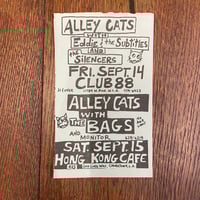 ALLEY CATS
WITH
Eddie & the Subtitles
AND
SILENCERS
FRI. SEPT. 14
CLUB 88
ALLEY CATS
WITH
THE BAGS
AND MONITOR
SAT. SEPT. 15
HONG KONG CAFE